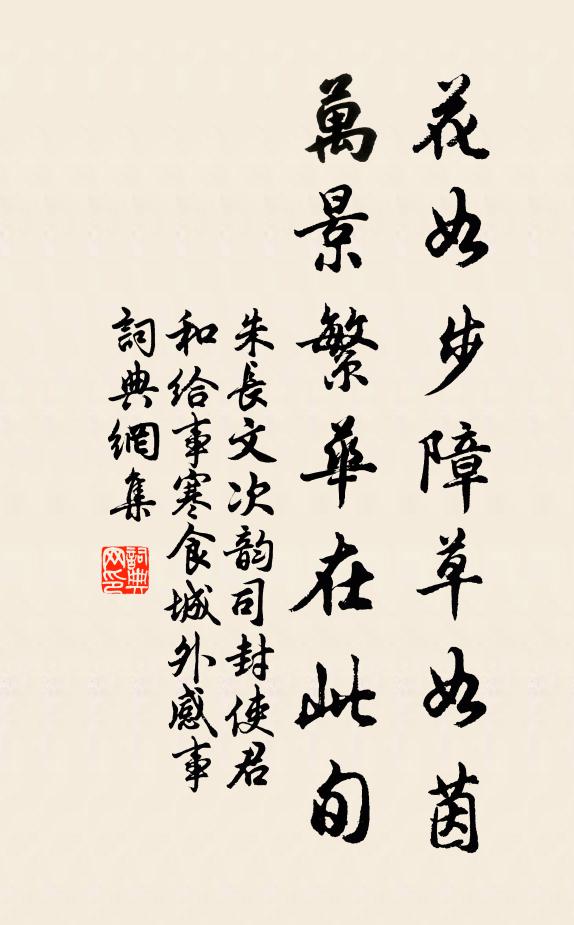 花如步障草如茵
萬景繁華在此旬
朱長文次韵司封使君
和給事寒食城外感事
詞典網集
詞典网印